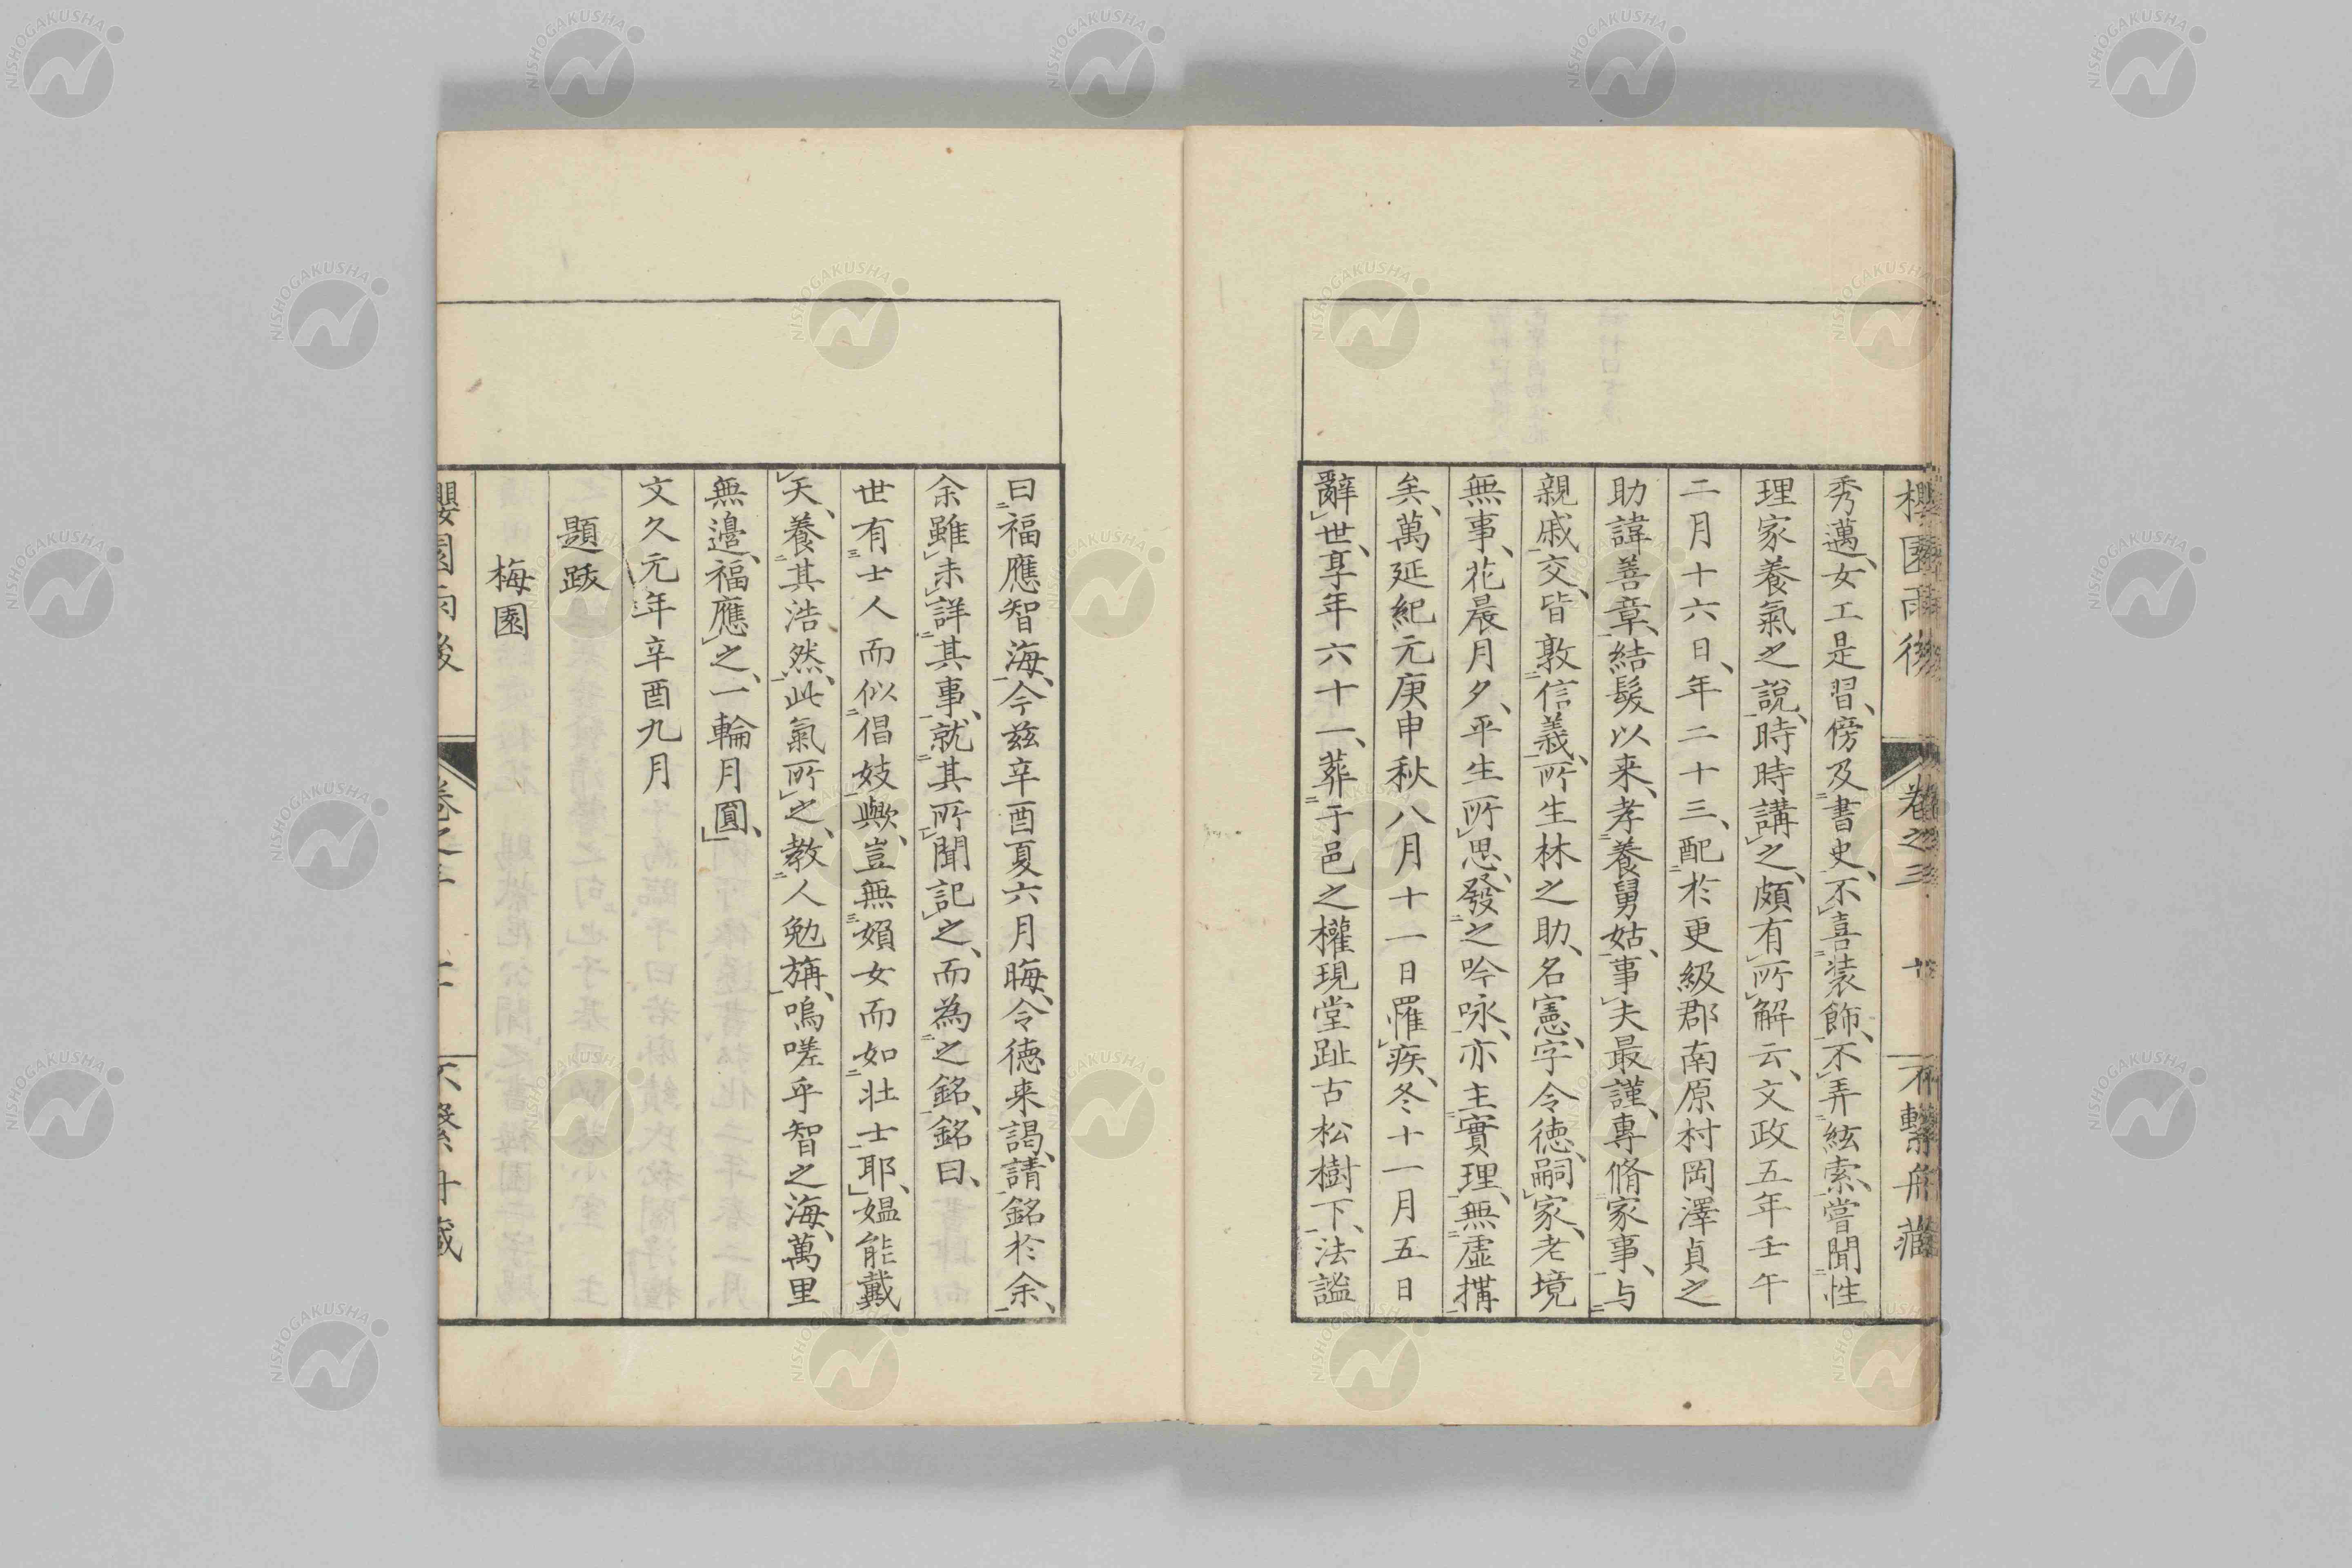 櫻園雨後 卷之三 不繫舟藏
秀邁、女工是習、傍及書史、不喜装飾、不弄絃索、嘗聞性
理家養氣之說、時時講之、頗有所解云、文政五年壬午
二月十六日、年二十三、配於更級郡南原村岡澤貞之
助諱善章、結髮以来、孝養舅姑、事夫最謹、專脩家事、与
親戚交、皆敦信義、所生林之助、名憲、字令徳、嗣家、老境
無事、花晨月夕、平生所思、發之吟咏、亦主實理、無虚搆
矣、萬延紀元庚申秋八月十一日罹疾、冬十一月五日
辭世、享年六十一、葬于邑之權現堂趾古松樹下、法謚
曰福應智海、今兹辛酉夏六月晦、令徳来謁、請銘於余、
余雖未詳其事、就其所聞記之、而為之銘、銘曰、
世有士人而似倡妓歟、豈無嬪女而如壮士耶、媼能戴
天、養其浩然、此氣所之、教人勉旃、嗚嗟乎智之海、萬里
無邊、福應之、一輪月圓、
文久元年辛酉九月
題跋
梅園
櫻園雨後 卷之三 不繫舟藏
NISHOGAKUSHA